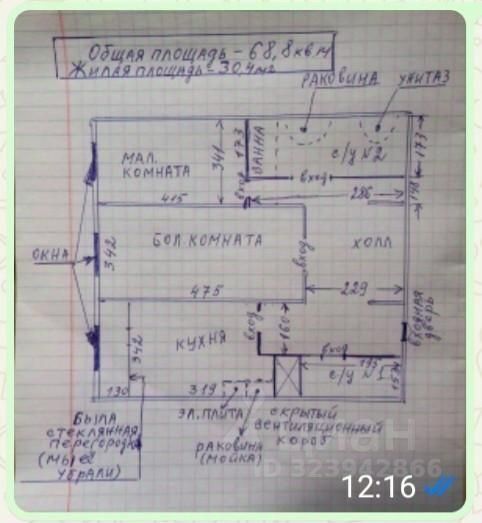 Общая площадь - 68,8 кв м
Жилая площадь - 30,4 м²
РАКОВИНА
УНИТАЗ
МАЛ.
КОМНАТА
341
173
ВАННА
с/у №2
173
вход
вход
415
286
148
ОКНА
342
БОЛ. КОМНАТА
вход
ХОЛЛ
475
229
КУХНЯ
вход
160
ВХОДНАЯ
ДВЕРЬ
342
вход
195
с/у №1
130
319
БЫЛА
СТЕКЛЯННАЯ
ПЕРЕГОРОДКА
(МЫ ЕЁ
УБРАЛИ)
ЭЛ. ПЛИТА
РАКОВИНА
(МОЙКА)
СКРЫТЫЙ
ВЕНТИЛЯЦИОННЫЙ
КОРОБ
циан
ID 323942866
12:16